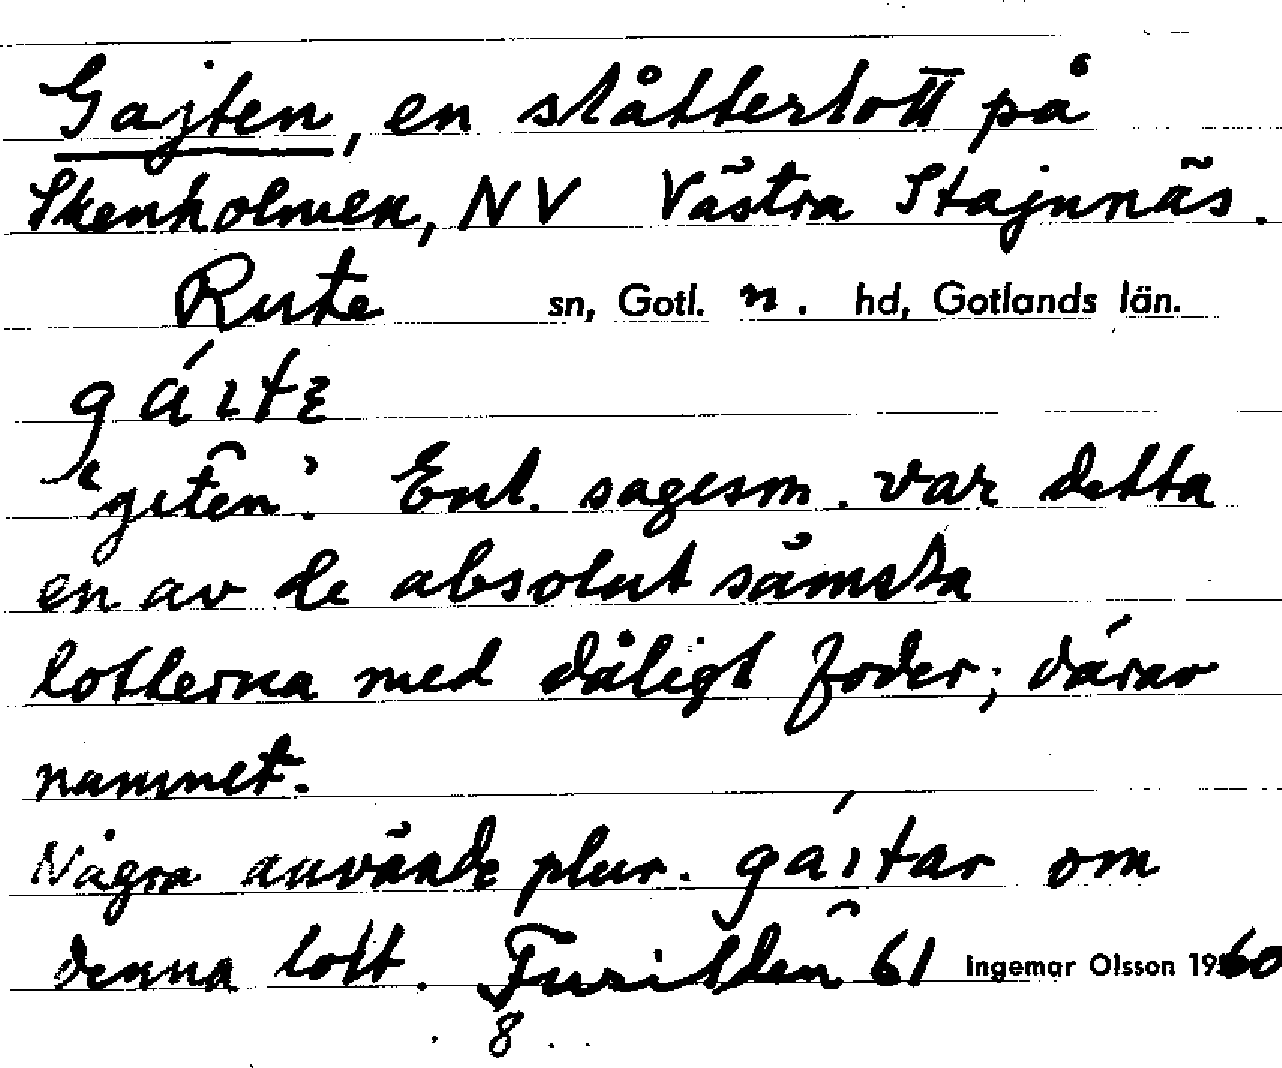 Gajten, en slåtterlott på
Skenholmen, NV Västra Stajnnäs.
Rute sn, Gotl. n. hd, Gotlands län.
gáıtɛ
"geten". Enl. sagesm. var detta
en av de absolut sämsta
lotterna med dåligt foder; därav
namnet.
Några använde plur. gáıtar om
denna lott. Furilden 61 Ingemar Olsson 1960
8